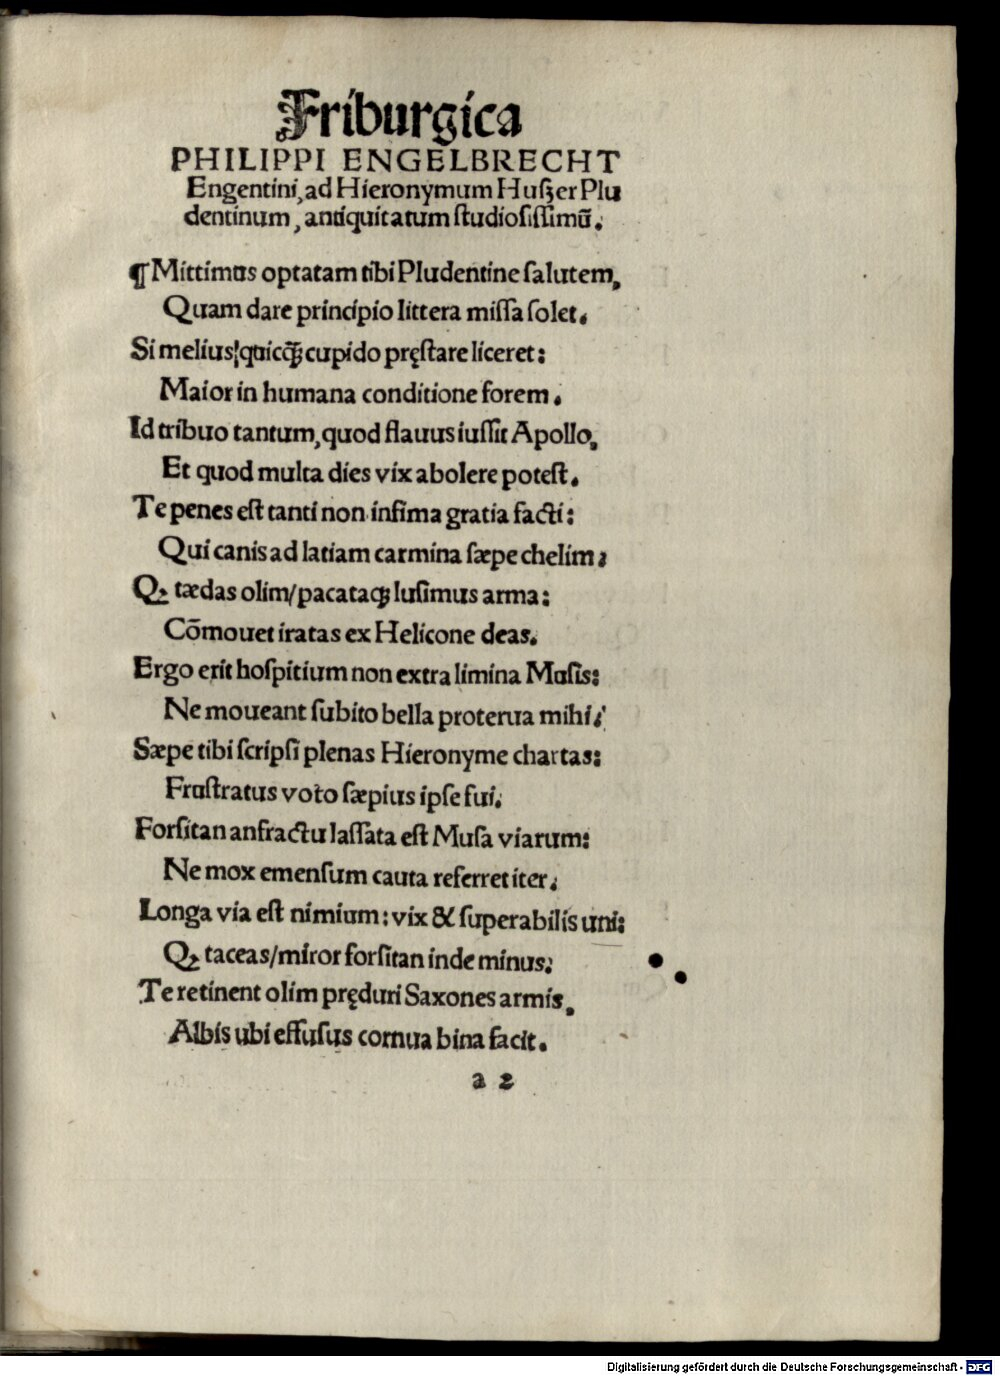 Friburgica
PHILIPPI ENGELBRECHT
Engentini, ad Hieronymum Huſʒer Plu
dentinum, antiquitatum ſtudioſiſſimū.
¶ Mittimus optatam tibi Pludentine ſalutem,
Quam dare principio littera miſſa ſolet.
Si melius/quicq̄ʒ cupido pręſtare liceret:
Maior in humana conditione forem.
Id tribuo tantum, quod flauus iuſſit Apollo,
Et quod multa dies vix abolere poteſt.
Te penes eſt tanti non infima gratia facti:
Qui canis ad latiam carmina ſæpe chelim;
Qꝫ tædas olim/pacataqꝫ luſimus arma:
Cōmouet iratas ex Helicone deas.
Ergo erit hoſpitium non extra limina Muſis:
Ne moueant ſubito bella proterua mihi;
Sæpe tibi ſcripſi plenas Hieronyme chartas:
Fruſtratus voto ſæpius ipſe fui.
Forſitan anfractu laſſata eſt Muſa viarum:
Ne mox emenſum cauta referret iter.
Longa via eſt nimium: vix & ſuperabilis uni:
Qꝫ taceas/miror forſitan inde minus:
Te retinent olim pręduri Saxones armis,
Albis ubi effuſus cornua bina facit.
a 2
Digitalisierung gefördert durch die Deutsche Forschungsgemeinschaft - DFG